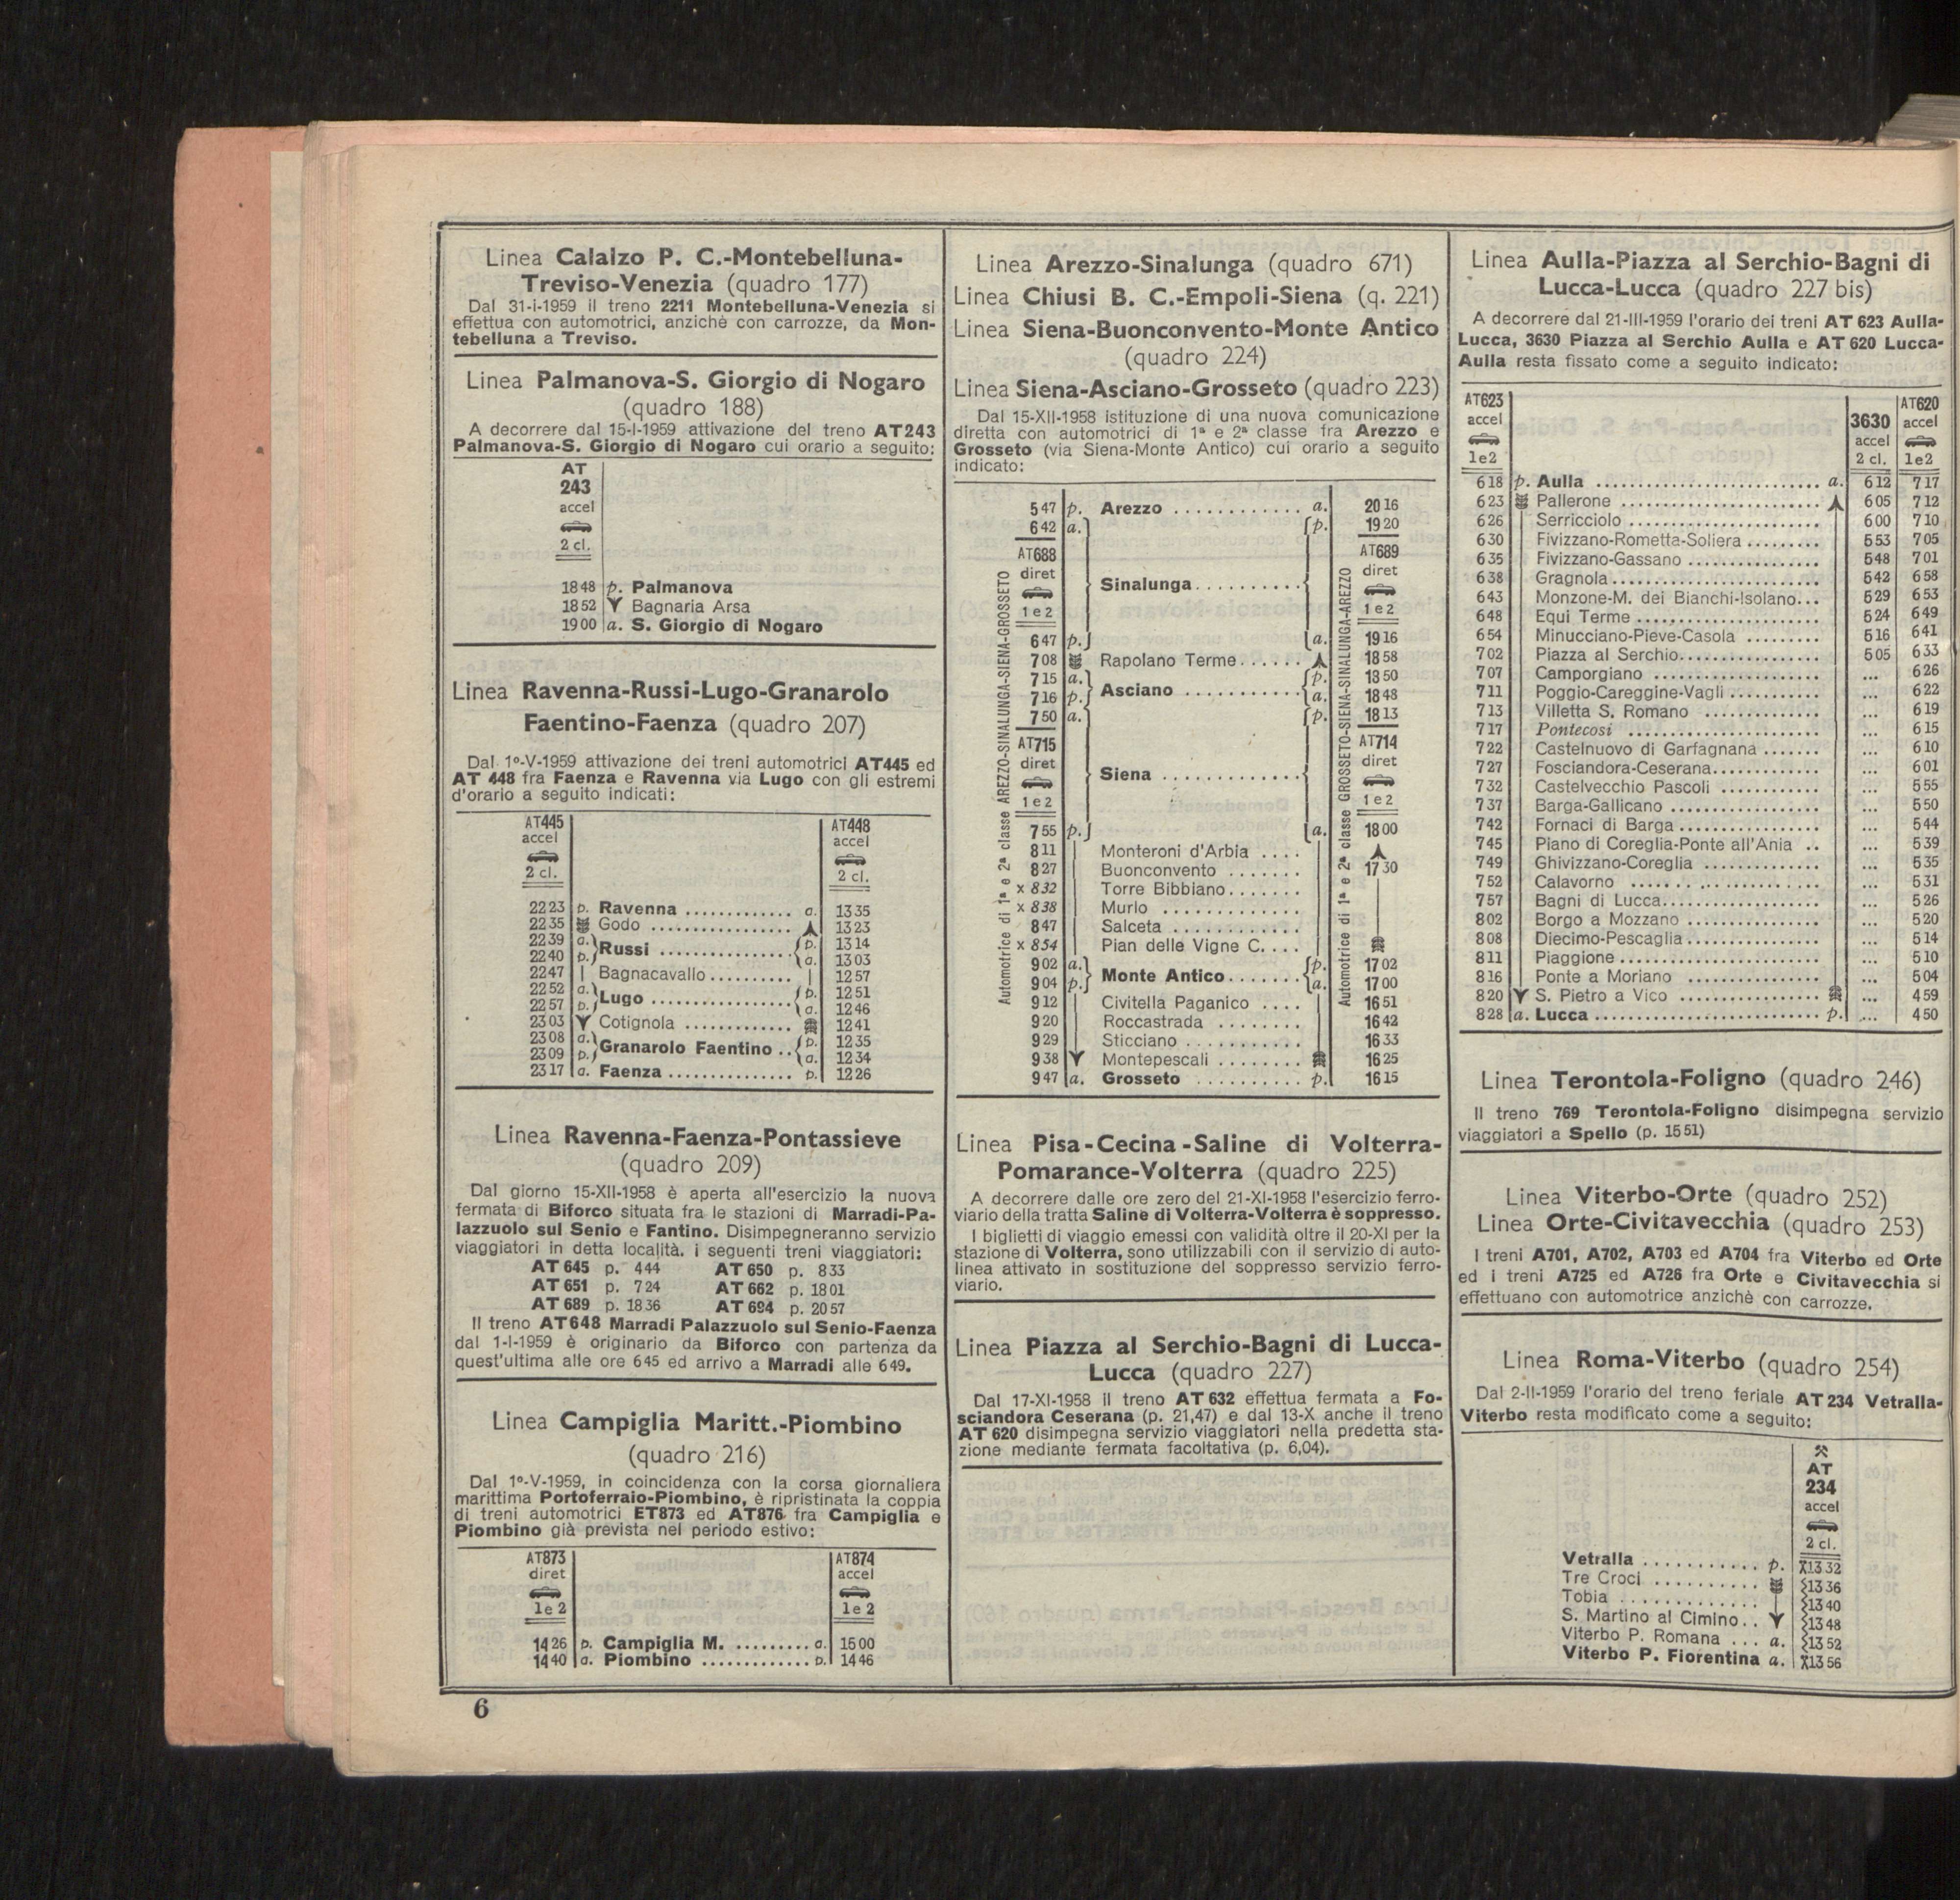 Linea Calalzo P. C.-Montebelluna-
Treviso-Venezia (quadro 177)
Dal 31-I-1959 il treno 2211 Montebelluna-Venezia si
effettua con automotrici, anzichè con carrozze, da Mon-
tebelluna a Treviso.
Linea Palmanova-S. Giorgio di Nogaro
(quadro 188)
A decorrere dal 15-I-1959 attivazione del treno AT243
Palmanova-S. Giorgio di Nogaro cui orario a seguito:
AT
243
accel
2 cl.
1848 p. Palmanova
1852 Bagnaria Arsa
1900 a. S. Giorgio di Nogaro
Linea Ravenna-Russi-Lugo-Granarolo
Faentino-Faenza (quadro 207)
Dal 1º-V-1959 attivazione dei treni automotrici AT445 ed
AT 448 fra Faenza e Ravenna via Lugo con gli estremi
d'orario a seguito indicati:
AT445 AT448
accel accel
2 cl. 2 cl.
2223 p. Ravenna ............. a. 1335
2235 Godo ................. 1323
2239 a. Russi ................ p. 1314
2240 p. a. 1303
2247 Bagnacavallo .......... 1257
2252 a. Lugo ................ p. 1251
2257 p. a. 1246
2303 Cotignola ............. 1241
2308 a. Granarolo Faentino .. p. 1235
2309 p. a. 1234
2317 a. Faenza ............... p. 1226
Linea Ravenna-Faenza-Pontassieve
(quadro 209)
Dal giorno 15-XII-1958 è aperta all'esercizio la nuova
fermata di Biforco situata fra le stazioni di Marradi-Pa-
lazzuolo sul Senio e Fantino. Disimpegneranno servizio
viaggiatori in detta località. i seguenti treni viaggiatori:
AT 645 p. 444 AT 650 p. 833
AT 651 p. 724 AT 662 p. 1801
AT 689 p. 1836 AT 694 p. 2057
Il treno AT648 Marradi Palazzuolo sul Senio-Faenza
dal 1-I-1959 è originario da Biforco con partenza da
quest'ultima alle ore 645 ed arrivo a Marradi alle 649.
Linea Campiglia Maritt.-Piombino
(quadro 216)
Dal 1º-V-1959, in coincidenza con la corsa giornaliera
marittima Portoferraio-Piombino, è ripristinata la coppia
di treni automotrici ET873 ed AT876 fra Campiglia e
Piombino già prevista nel periodo estivo:
AT873 AT874
diret accel
1e2 1e2
1426 p. Campiglia M. ......... a. 1500
1440 a. Piombino ............. p. 1446
6
Linea Arezzo-Sinalunga (quadro 671)
Linea Chiusi B. C.-Empoli-Siena (q. 221)
Linea Siena-Buonconvento-Monte Antico
(quadro 224)
Linea Siena-Asciano-Grosseto (quadro 223)
Dal 15-XII-1958 istituzione di una nuova comunicazione
diretta con automotrici di 1ª e 2ª classe fra Arezzo e
Grosseto (via Siena-Monte Antico) cui orario a seguito
indicato:
Automotrice di 1ª e 2ª classe AREZZO-SINALUNGA-SIENA-GROSSETO
547 p. Arezzo ............ a. 2016
642 a. p. 1920
AT688 AT689
diret diret
Sinalunga..........
1e2 1e2
647 p. a. 1916
708 Rapolano Terme...... 1858
715 a. Asciano ........... p. 1850
716 p. a. 1848
750 a. p. 1813
AT715 AT714
diret diret
Siena .............
1e2 1e2
755 p. a. 1800
811 Monteroni d'Arbia ....
827 Buonconvento ....... 1730
x 832 Torre Bibbiano.......
x 838 Murlo .............
847 Salceta ............
x 854 Pian delle Vigne C. ...
902 a. Monte Antico....... p. 1702
904 p. a. 1700
912 Civitella Paganico .... 1651
920 Roccastrada ........ 1642
929 Sticciano ........... 1633
938 Montepescali ........ 1625
947 a. Grosseto .......... p. 1615
Automotrice di 1ª e 2ª classe GROSSETO-SIENA-SINALUNGA-AREZZO
Linea Pisa-Cecina-Saline di Volterra-
Pomarance-Volterra (quadro 225)
A decorrere dalle ore zero del 21-XI-1958 l'esercizio ferro-
viario della tratta Saline di Volterra-Volterra è soppresso.
I biglietti di viaggio emessi con validità oltre il 20-XI per la
stazione di Volterra, sono utilizzabili con il servizio di auto-
linea attivato in sostituzione del soppresso servizio ferro-
viario.
Linea Piazza al Serchio-Bagni di Lucca-
Lucca (quadro 227)
Dal 17-XI-1958 il treno AT 632 effettua fermata a Fo-
sciandora Ceserana (p. 21,47) e dal 13-X anche il treno
AT 620 disimpegna servizio viaggiatori nella predetta sta-
zione mediante fermata facoltativa (p. 6,04).
Linea Aulla-Piazza al Serchio-Bagni di
Lucca-Lucca (quadro 227 bis)
A decorrere dal 21-III-1959 l'orario dei treni AT 623 Aulla-
Lucca, 3630 Piazza al Serchio Aulla e AT 620 Lucca-
Aulla resta fissato come a seguito indicato:
AT623 3630 AT620
accel accel accel
1e2 2 cl. 1e2
618 p. Aulla ........................... a. 612 717
623 Pallerone ....................... 605 712
626 Serricciolo ...................... 600 710
630 Fivizzano-Rometta-Soliera ......... 553 705
635 Fivizzano-Gassano ............... 548 701
638 Gragnola........................ 542 658
643 Monzone-M. dei Bianchi-Isolano... 529 653
648 Equi Terme ..................... 524 649
654 Minucciano-Pieve-Casola ......... 516 641
702 Piazza al Serchio................. 505 633
707 Camporgiano .................... ... 626
711 Poggio-Careggine-Vagli ........... ... 622
713 Villetta S. Romano .............. ... 619
717 Pontecosi ...................... ... 615
722 Castelnuovo di Garfagnana ....... ... 610
727 Fosciandora-Ceserana............. ... 601
732 Castelvecchio Pascoli ............ ... 555
737 Barga-Gallicano .................. ... 550
742 Fornaci di Barga ................. ... 544
745 Piano di Coreglia-Ponte all'Ania .. ... 539
749 Ghivizzano-Coreglia .............. ... 535
752 Calavorno ...................... ... 531
757 Bagni di Lucca................... ... 526
802 Borgo a Mozzano ................ ... 520
808 Diecimo-Pescaglia................ ... 514
811 Piaggione ....................... ... 510
816 Ponte a Moriano ................ ... 504
820 S. Pietro a Vico ................. ... 459
828 a. Lucca ........................... p. ... 450
Linea Terontola-Foligno (quadro 246)
Il treno 769 Terontola-Foligno disimpegna servizio
viaggiatori a Spello (p. 1551)
Linea Viterbo-Orte (quadro 252)
Linea Orte-Civitavecchia (quadro 253)
I treni A701, A702, A703 ed A704 fra Viterbo ed Orte
ed i treni A725 ed A726 fra Orte e Civitavecchia si
effettuano con automotrice anzichè con carrozze.
Linea Roma-Viterbo (quadro 254)
Dal 2-II-1959 l'orario del treno feriale AT 234 Vetralla-
Viterbo resta modificato come a seguito:
AT
234
accel
2 cl.
Vetralla ........... p. 1332
Tre Croci .......... 1336
Tobia ............. 1340
S. Martino al Cimino.. 1348
Viterbo P. Romana ... a. 1352
Viterbo P. Fiorentina a. 1356